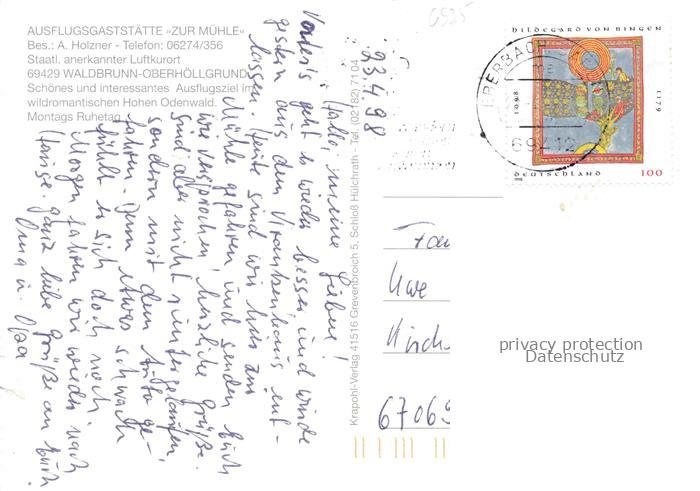 AUSFLUGSGASTSTÄTTE »ZUR MÜHLE«
Bes.: A. Holzner - Telefon: 06274/356
Staatl. anerkannter Luftkurort
69429 WALDBRUNN-OBERHÖLLGRUND
Schönes und interessantes Ausflugsziel im
wildromantischen Hohen Odenwald.
Montags Ruhetag
23.4.98
Hallo, meine Lieben!
geht es wieder besser und wurde
gestern aus dem Krankenhaus ent-
lassen. Heute sind wir hier zur
Mühle gefahren und senden Euch
wie versprochen, herzliche Grüße.
Sind aber nicht hintergelaufen,
sondern mit dem Auto ge-
fahren. Denn etwas schwach
fühlt er sich doch noch.
Morgen fahren wir wieder nach
Hause. Ganz liebe Grüße an Euch
Oma u. Opa
Krapohl-Verlag 41516 Grevenbroich 5, Schloß Hülchrath - Tel. (02182) 7104
0925
HILDEGARD VON BINGEN
1098
1179
DEUTSCHLAND
100
EBERBACH
69412
Fam
Uwe
Kirch
67069
privacy protection
Datenschutz